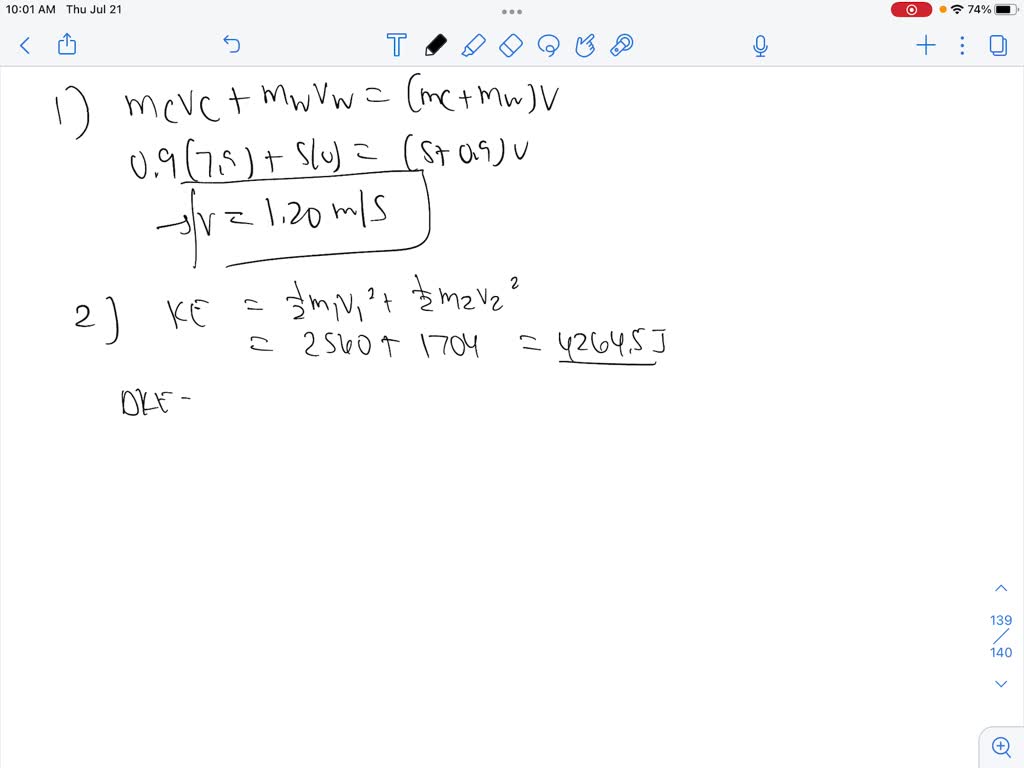 10:01 AM Thu Jul 21
74%
1) mcvc + mwvw = (mc + mw)v
0.9(7.5) + 5(0) = (5 + 0.9)v
→ v = 1.20 m/s
2) KE = 1/2 m1v1² + 1/2 m2v2²
= 2560 + 1704 = 4264.5 J
DKE -
139
140